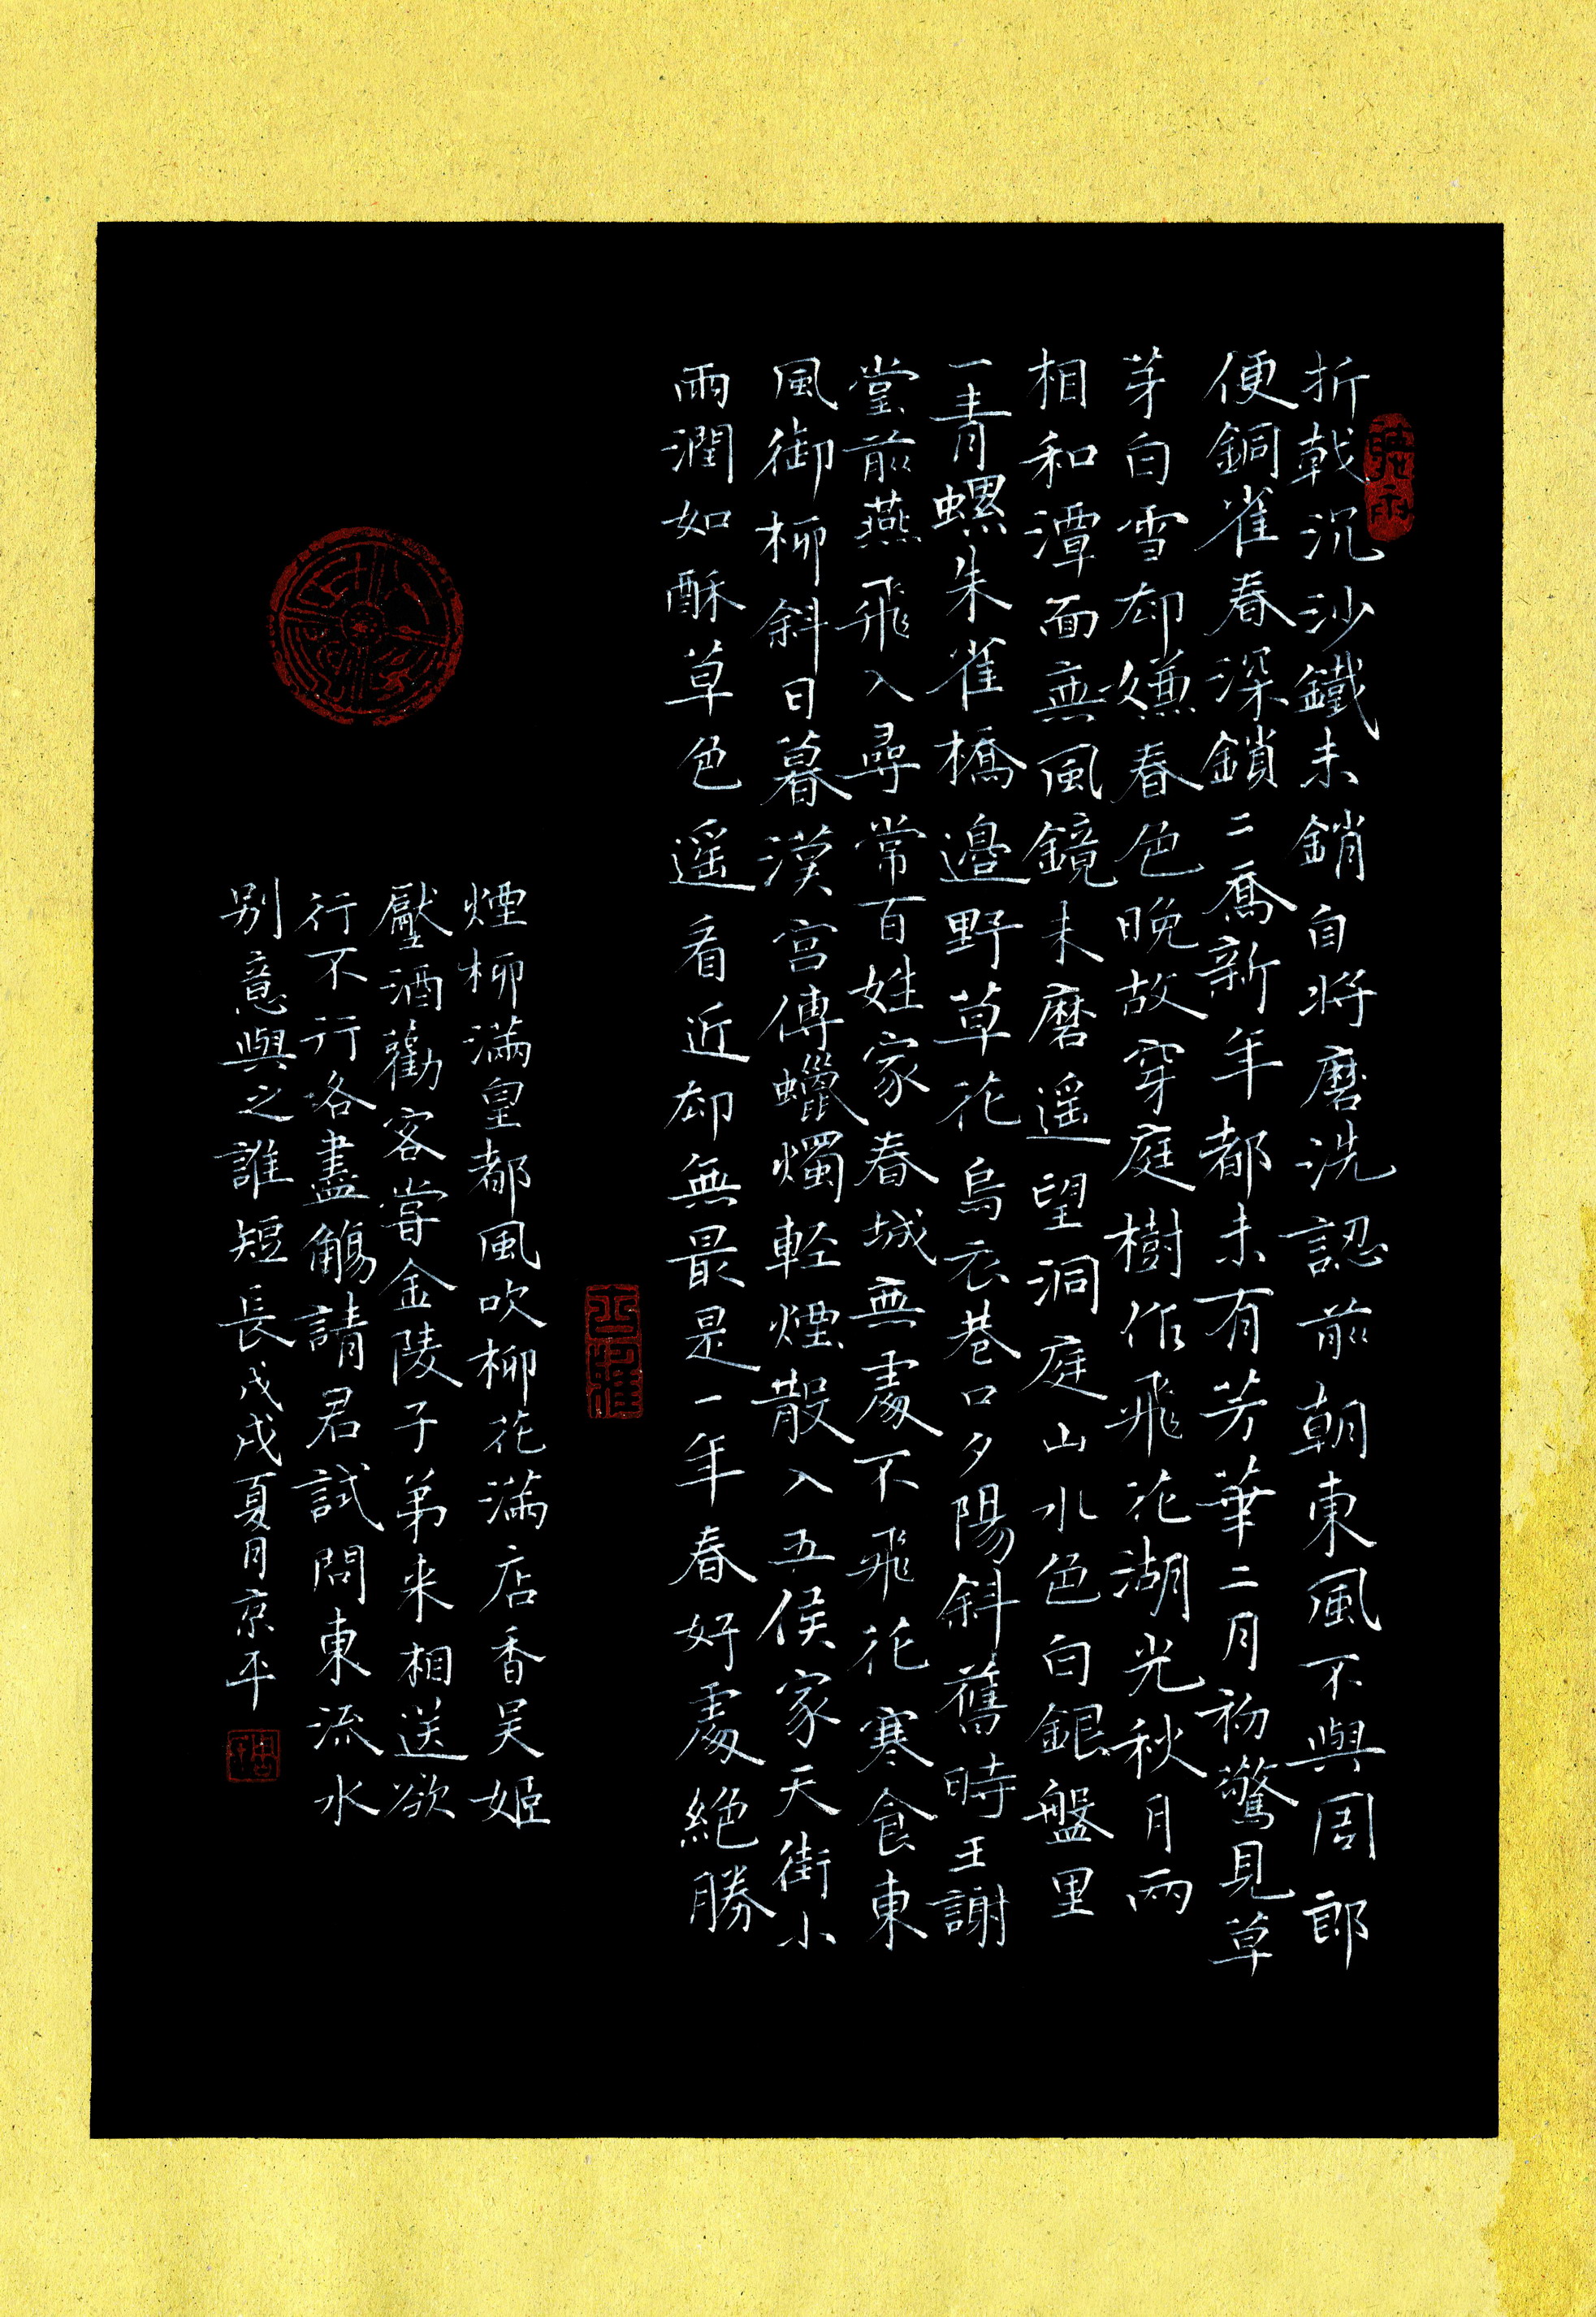 折戟沉沙鐵未銷自將磨洗認前朝東風不與周郎
便銅雀春深鎖二喬新年都未有芳華二月初驚見草
芽白雪却嫌春色晚故穿庭樹作飛花湖光秋月兩
相和潭面無風鏡未磨遥望洞庭山水色白銀盤里
一青螺朱雀橋邊野草花烏衣巷口夕陽斜舊時王謝
堂前燕飛入尋常百姓家春城無處不飛花寒食東
風御柳斜日暮漢宮傳蠟燭輕煙散入五侯家天街小
雨潤如酥草色遥看近却無最是一年春好處絶勝
煙柳滿皇都風吹柳花滿店香吴姬
壓酒勸客嘗金陵子弟来相送欲
行不行各盡觴請君試問東流水
别意與之誰短長戊戌夏月京平